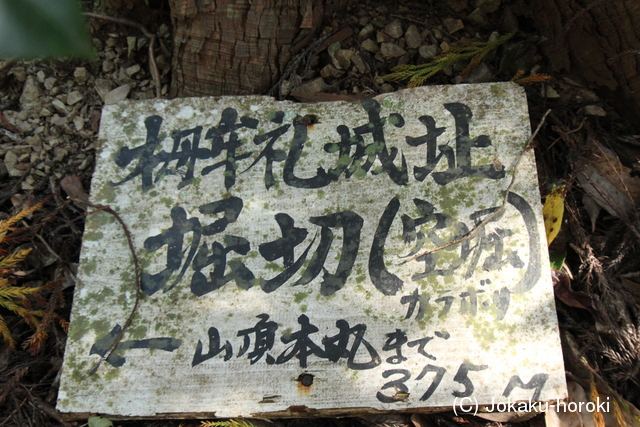 栂牟礼城址
堀切(空堀)
カラボリ
← 山頂本丸まで
375M
(C) Jokaku-horoki